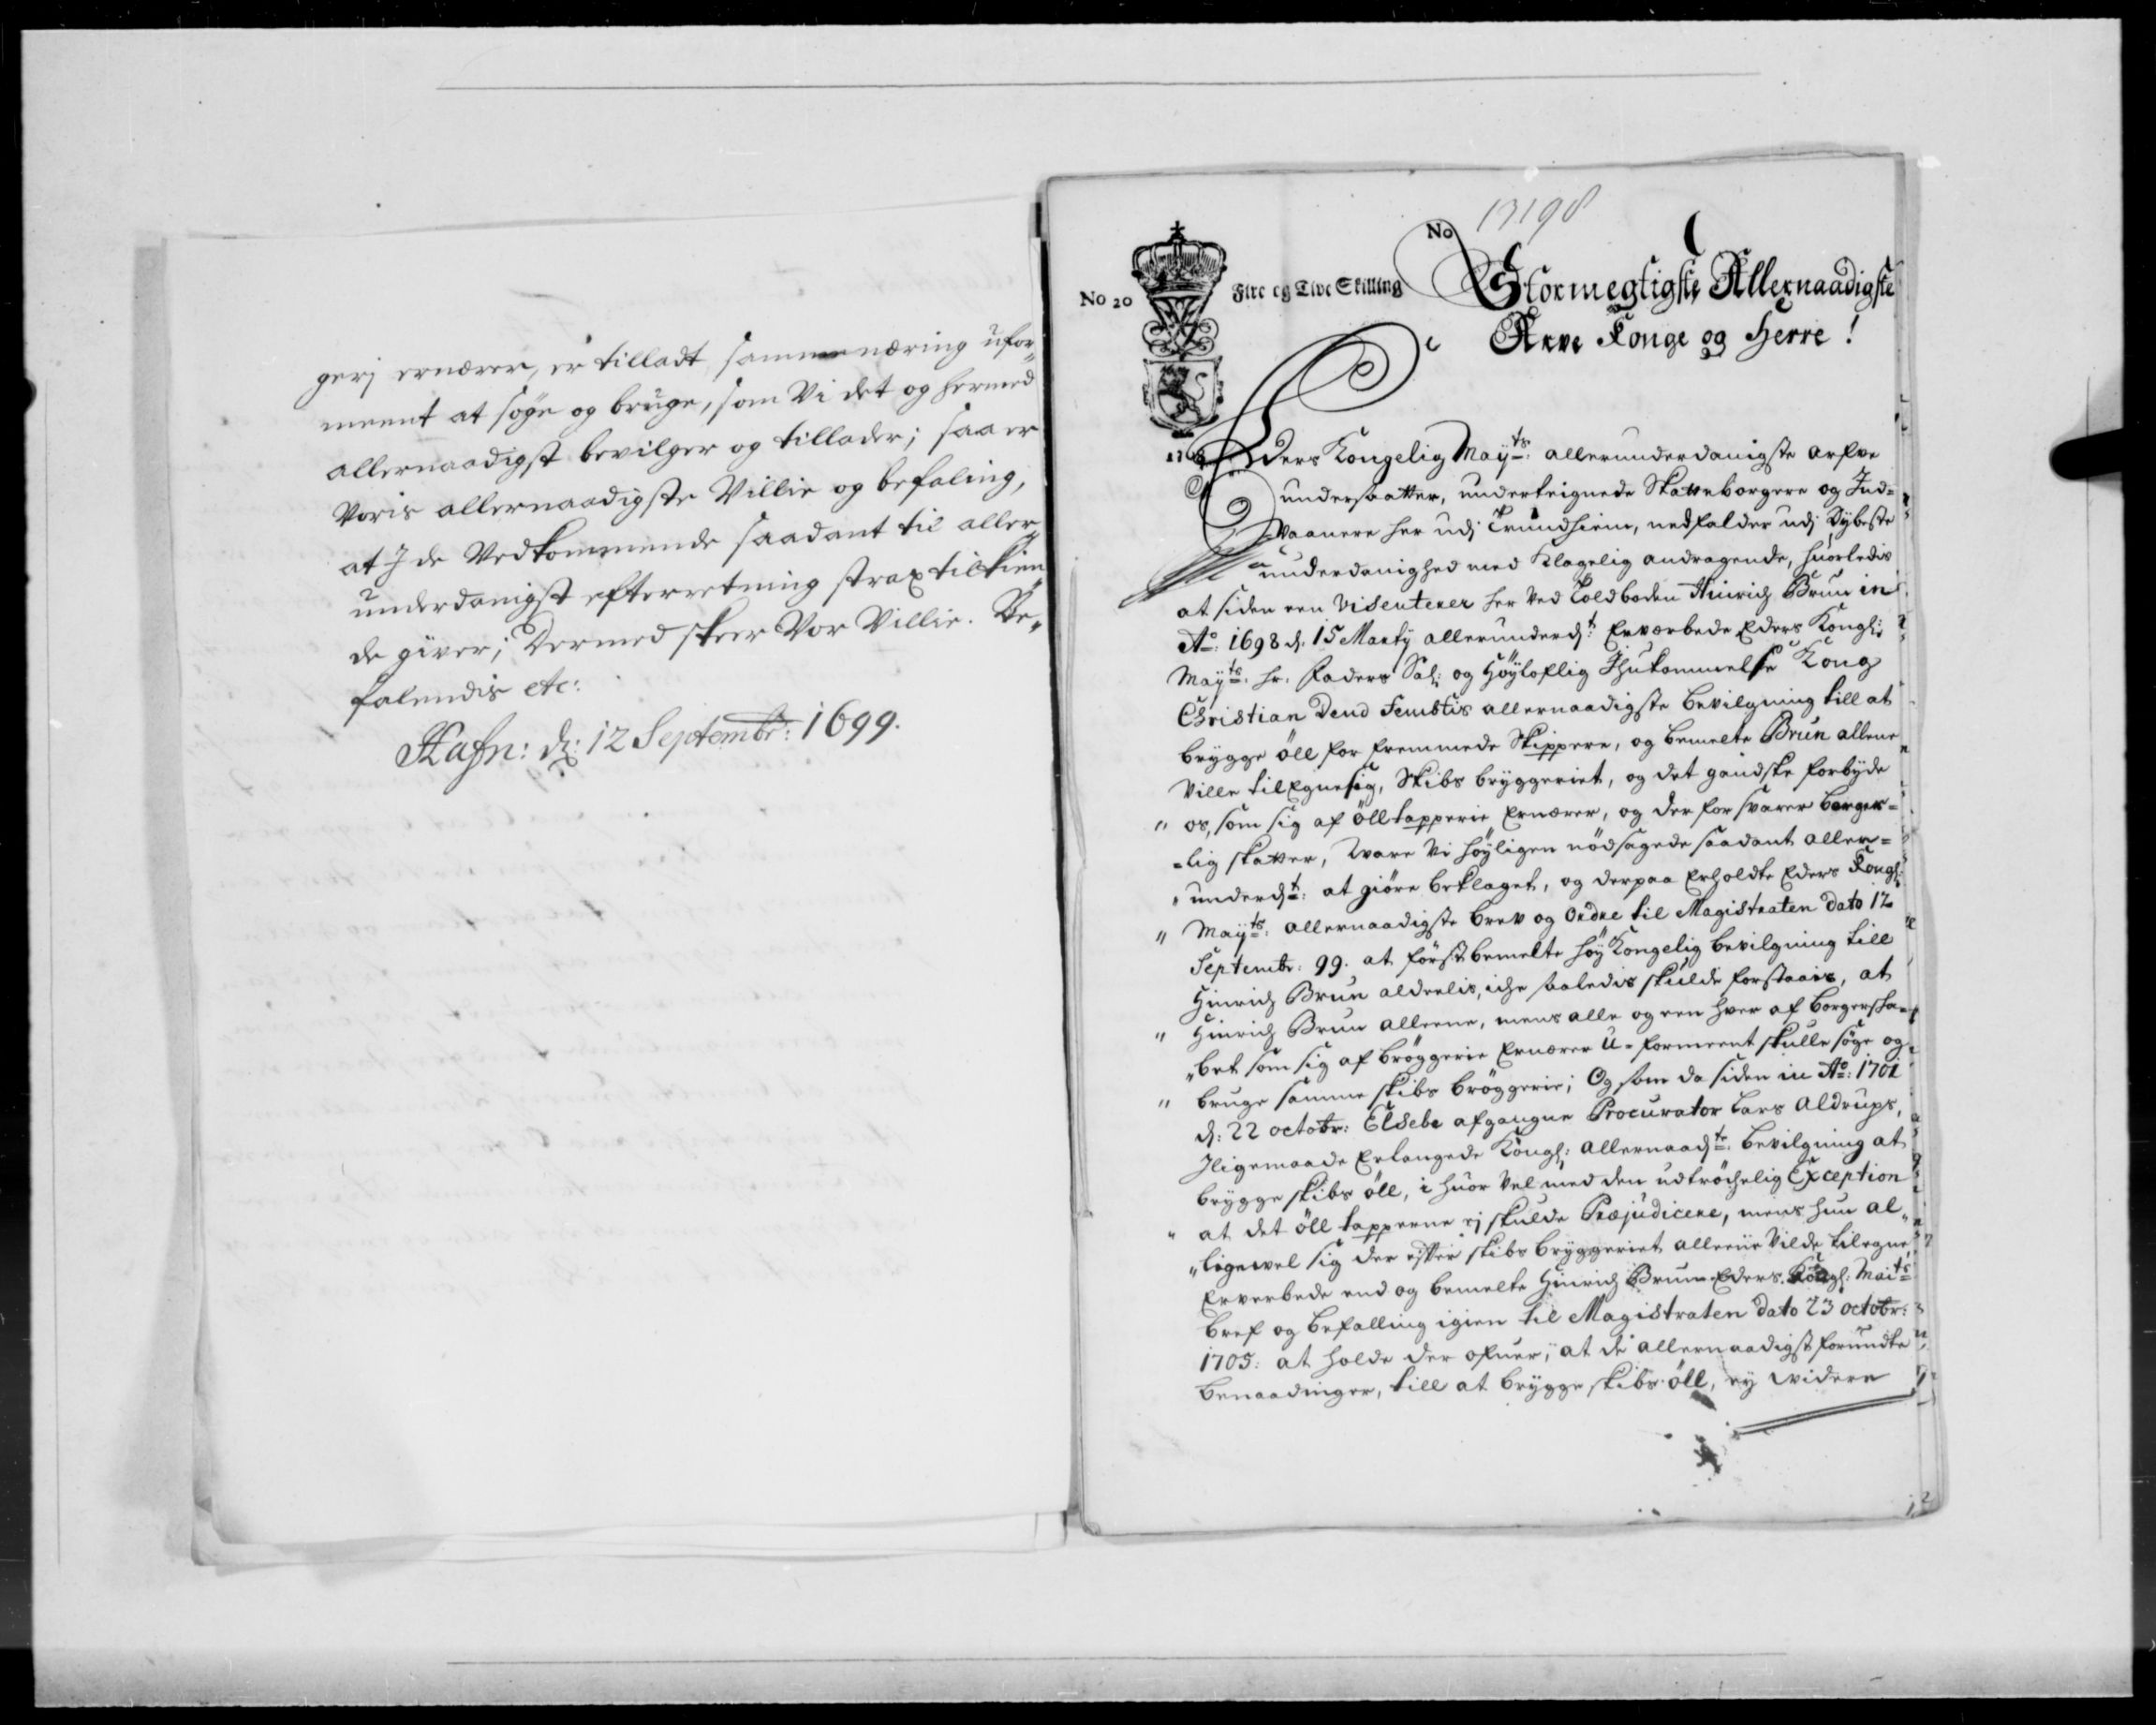 gerj ernærer, er tilladt samme næring ufor„
meent at søge og bruge, som Vi det og hermed
allernaadigst bevilger og tillader; saa er
Voris allernaadigste Villie og befaling,
at I de Vedkommende saadant til aller„
underdanigst efterretning strax tilkien„
de giver; Dermed skeer Vor Villie. Be„
falendis etc:
Hafn: d: 12 Septembr: 1699.
No 13198
No 20
Fire og Tive Skilling
Stormegtigste Allernaadigste
Arve Konge og Herre!
Eders Kongelig Mayts: allerunderdanigste arfve
undersaatter, underteignede Skatteborgere og Ind=
Vaanere her udj Trundhiem, nedfalder udj dybeste
underdanighed med Klagelig andragende, huorledis
at siden een Visenterer her ved Toldboden Hinrich Brun in
Ao: 1698 d. 15 Marty allerunderdt: Erværbede Eders Kongl:
Mayts: hr. Faders Sal: og Høyloflig Ihukommelse Kong
Christian Dend Femtis allernaadigste bevilgning till at
brygge öll for fremmede Skippere, og bemelte Brun allene
Ville tilEgne sig, Skibs bryggeriet, og det gandske forbyde
" os, som sig af ölltapperie Ernærer, og der for svarer borger=
=lig skatter, Ware Vi høyligen nödsagede saadant aller=
" underdt: at giøre beklaget, og derpaa Erholdte Eders Kongl:
" Mayts: allernaadigste brev og Ordre til Magistraten dato 12
Septembr: 99. at førstbemelte høy Kongelig bevilgning till
Hinrich Brun aldeelis, iche saaledis skulde forstaais, at
" Hinrich Brun alleene, mens alle og een hver af borgerska=
"bet som sig af brøggerie Ernærer U=formeent skulle søge og
" bruge samme skibs brøggerie; Og som da siden in Ao: 1701
d: 22 octobr: Elsebe afgangne Procurator Lars Aldrups,
Jligemaade Erlangede Kongl: allernaadte: bevilgning at
brygge skibs öll, i huor vel med den udtröchelig Exception
" at det öll tapperne ej skulde Præjudicere, mens hun al„
"ligevel sig der efter skibs bryggeriet alleene vilde tilegne,
Erverbede end og bemelte Hinrich Brun Eders Kongl: Maits
bref og befalling igien til Magistraten dato 23 octobr:
1705: at holde der ofuer, at de allernaadigst forundte
benaadinger, till at brygge skibs öll, ey widere